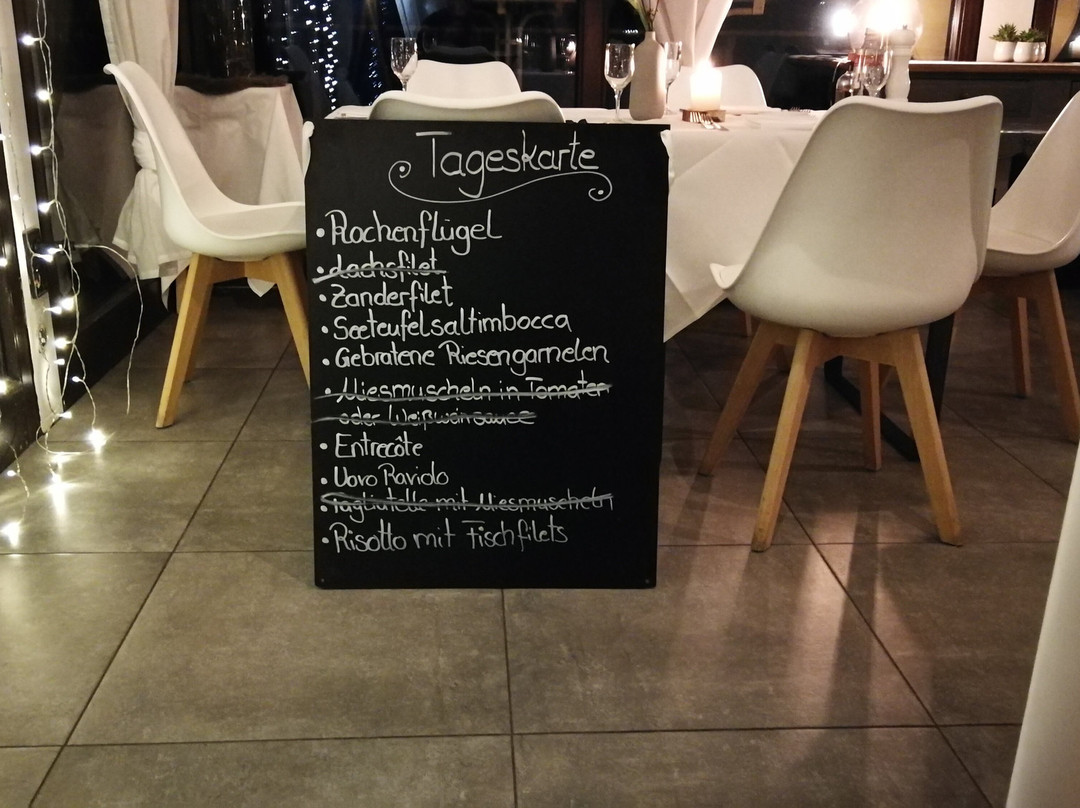 Tageskarte
• Rochenflügel
• Lachsfilet
• Zanderfilet
• Seeteufelsaltimbocca
• Gebratene Riesengarnelen
• Miesmuscheln in Tomaten
oder Weißweinsauce
• Entrecôte
• Uovo Raviolo
• Tagliatelle mit Miesmuscheln
• Risotto mit Fischfilets